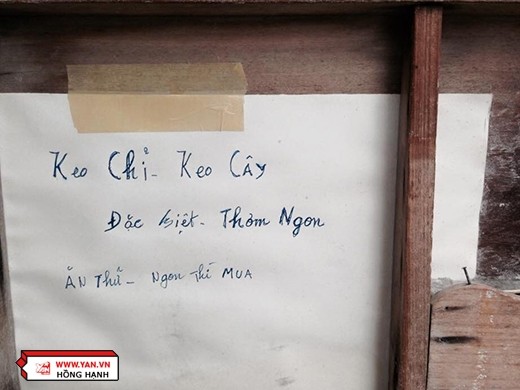 Keo Chỉ - Keo Cây
Đặc biệt - Thơm Ngon
ĂN Thử - Ngon Thì MUA
WWW.YAN.VN
HỒNG HẠNH